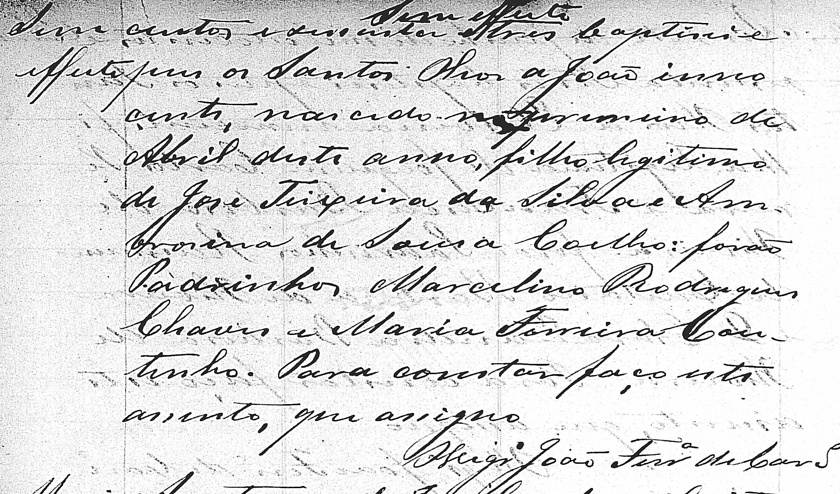 Sem effeito
Sem centos e sessenta e tres baptisei e
effeito pus os Santos Oleos a João inno
cente, nascido no primeiro de
Abril deste anno, filho legitimo
de Jose Teixeira da Silva e Am-
brosina de Sousa Coelho: forão
Padrinhos Marcelino Rodrigues
Chaves e Maria Ferreira Cou-
tinho. Para constar faço este
assento, que assigno
João Ferrª de Carº